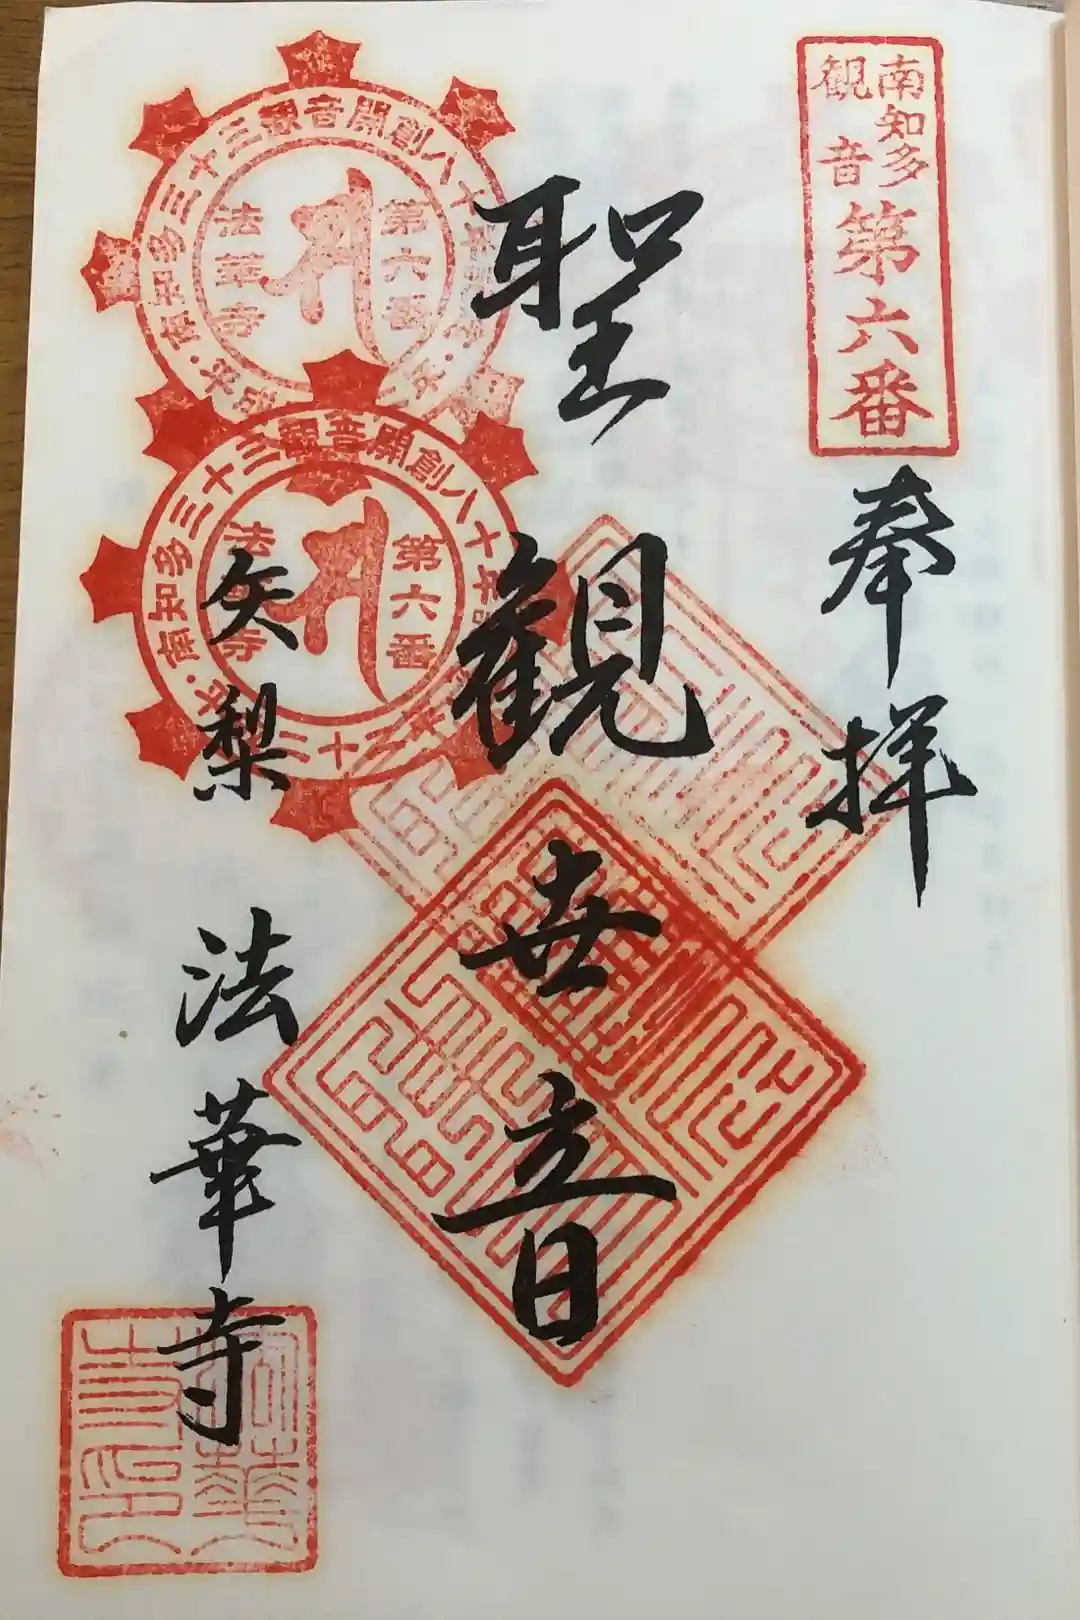 南知多
観音
第六番
奉拝
聖観世音
矢梨
法華寺
南知多三十三観音開創八十
第六番
法華寺
南知多三十三観音開創八十
第六番
法
寺